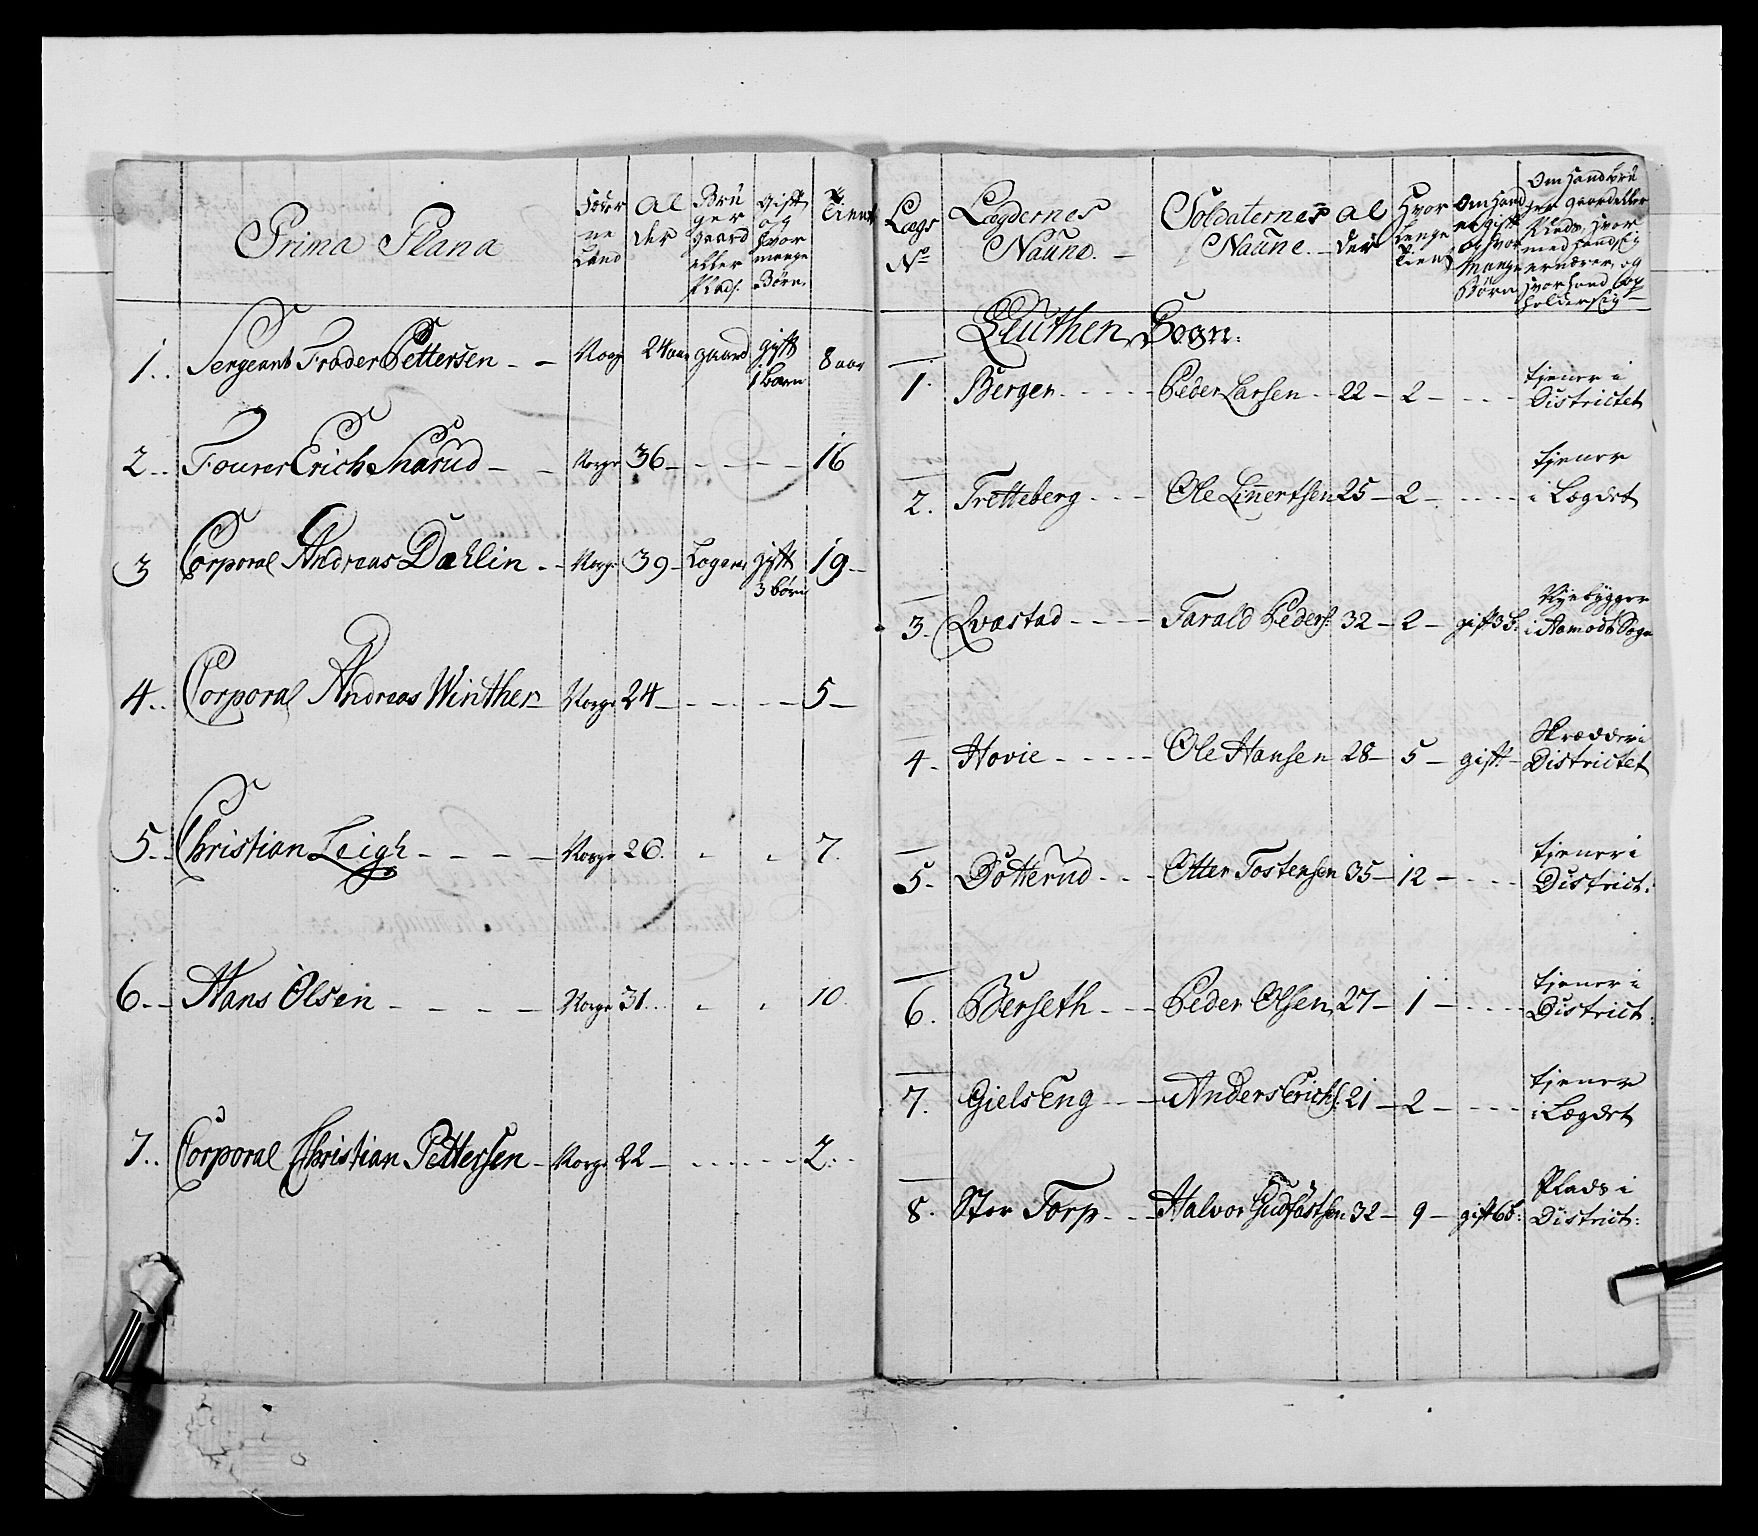 Prima Plana
Föder ne Land
Al der
Brü ger gaard eller Plads.
gift og hvor mange Börn
Tient
1.. Sergeant Frader Pettersen - - Norge 24 aar gaard gift 1 barn 8 aar
2.. Fourer Erich Snarud - - Norge 36 - - - - - 16
3 Corporal Andreas Dahlin - - Norge 39 - Logerer gift 3 börn 19 -
4.. Corporal Andreas Winther - Norge 24 - - - - - 5 -
5.. Christian Leigh - - - - Norge 26. 7.
6.. Hans Olsen - - - - Norge 31.. 10.
7.. Corporal Christian Pettersen - Norge 22 - - - - - 2..
Lægs No
Lægdernes Naune. -
Soldaternes Naune. -
Al der
Hvor lenge tient
Om hand er gift og hvor mange Börn
Om hand brü ger gaard eller Plads, hvor med hand sig ernærer, og hvor hand op holder sig -
Leuthen Sogn:
1. Bergen - - - - Peder Larsen - 22 - 2 - - - - tjener i Districtet
2. Tretteberg - - - Ole Linnertsen 25 - 2 - - - - tjener i Lægdet
3. Qvæstad - - - - Tarald Peders: 32 - 2 - gift 3 b: Nyebygger i Aamodt Sogn
4. Hovie - - - - - Ole Hansen 28 - 5 - gift - Skrædder i Districtet
5. Dotterud - - - Otter Tostensen 35 - 12 - - - tjener i District:
6. Berseth - - - Peder Olsen 27 - 1 - - - - tjener i District:
7. Gielseng - - - Anders Erichs: 21 - 2 - - - - tjener i Lægdet
8. Stor Torp - - - Halvor Gudfastsen 32 - 9 - gift 6 b: Plads i District: